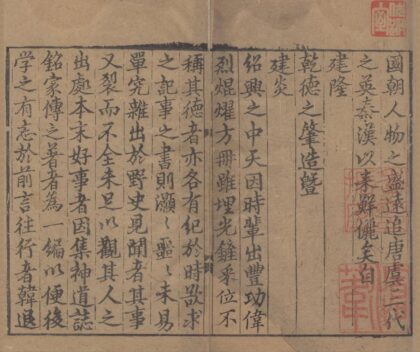 國朝人物之盛遠追唐虞三代
之英秦漢以來鮮儷矣自
建隆
乾德之肇造暨
建炎
紹興之中天因時輩出豐功偉
烈焜燿方冊雖埋光鏟采位不
稱其德者亦各有紀於時欲求
之記事之書則灝灝噩噩未易
單究雜出於野史見聞者其事
又裂而不全未足以觀其人之
出處本末好事者因集神道誌
銘家傳之著者為一編以便後
學之有志於前言往行者韓退